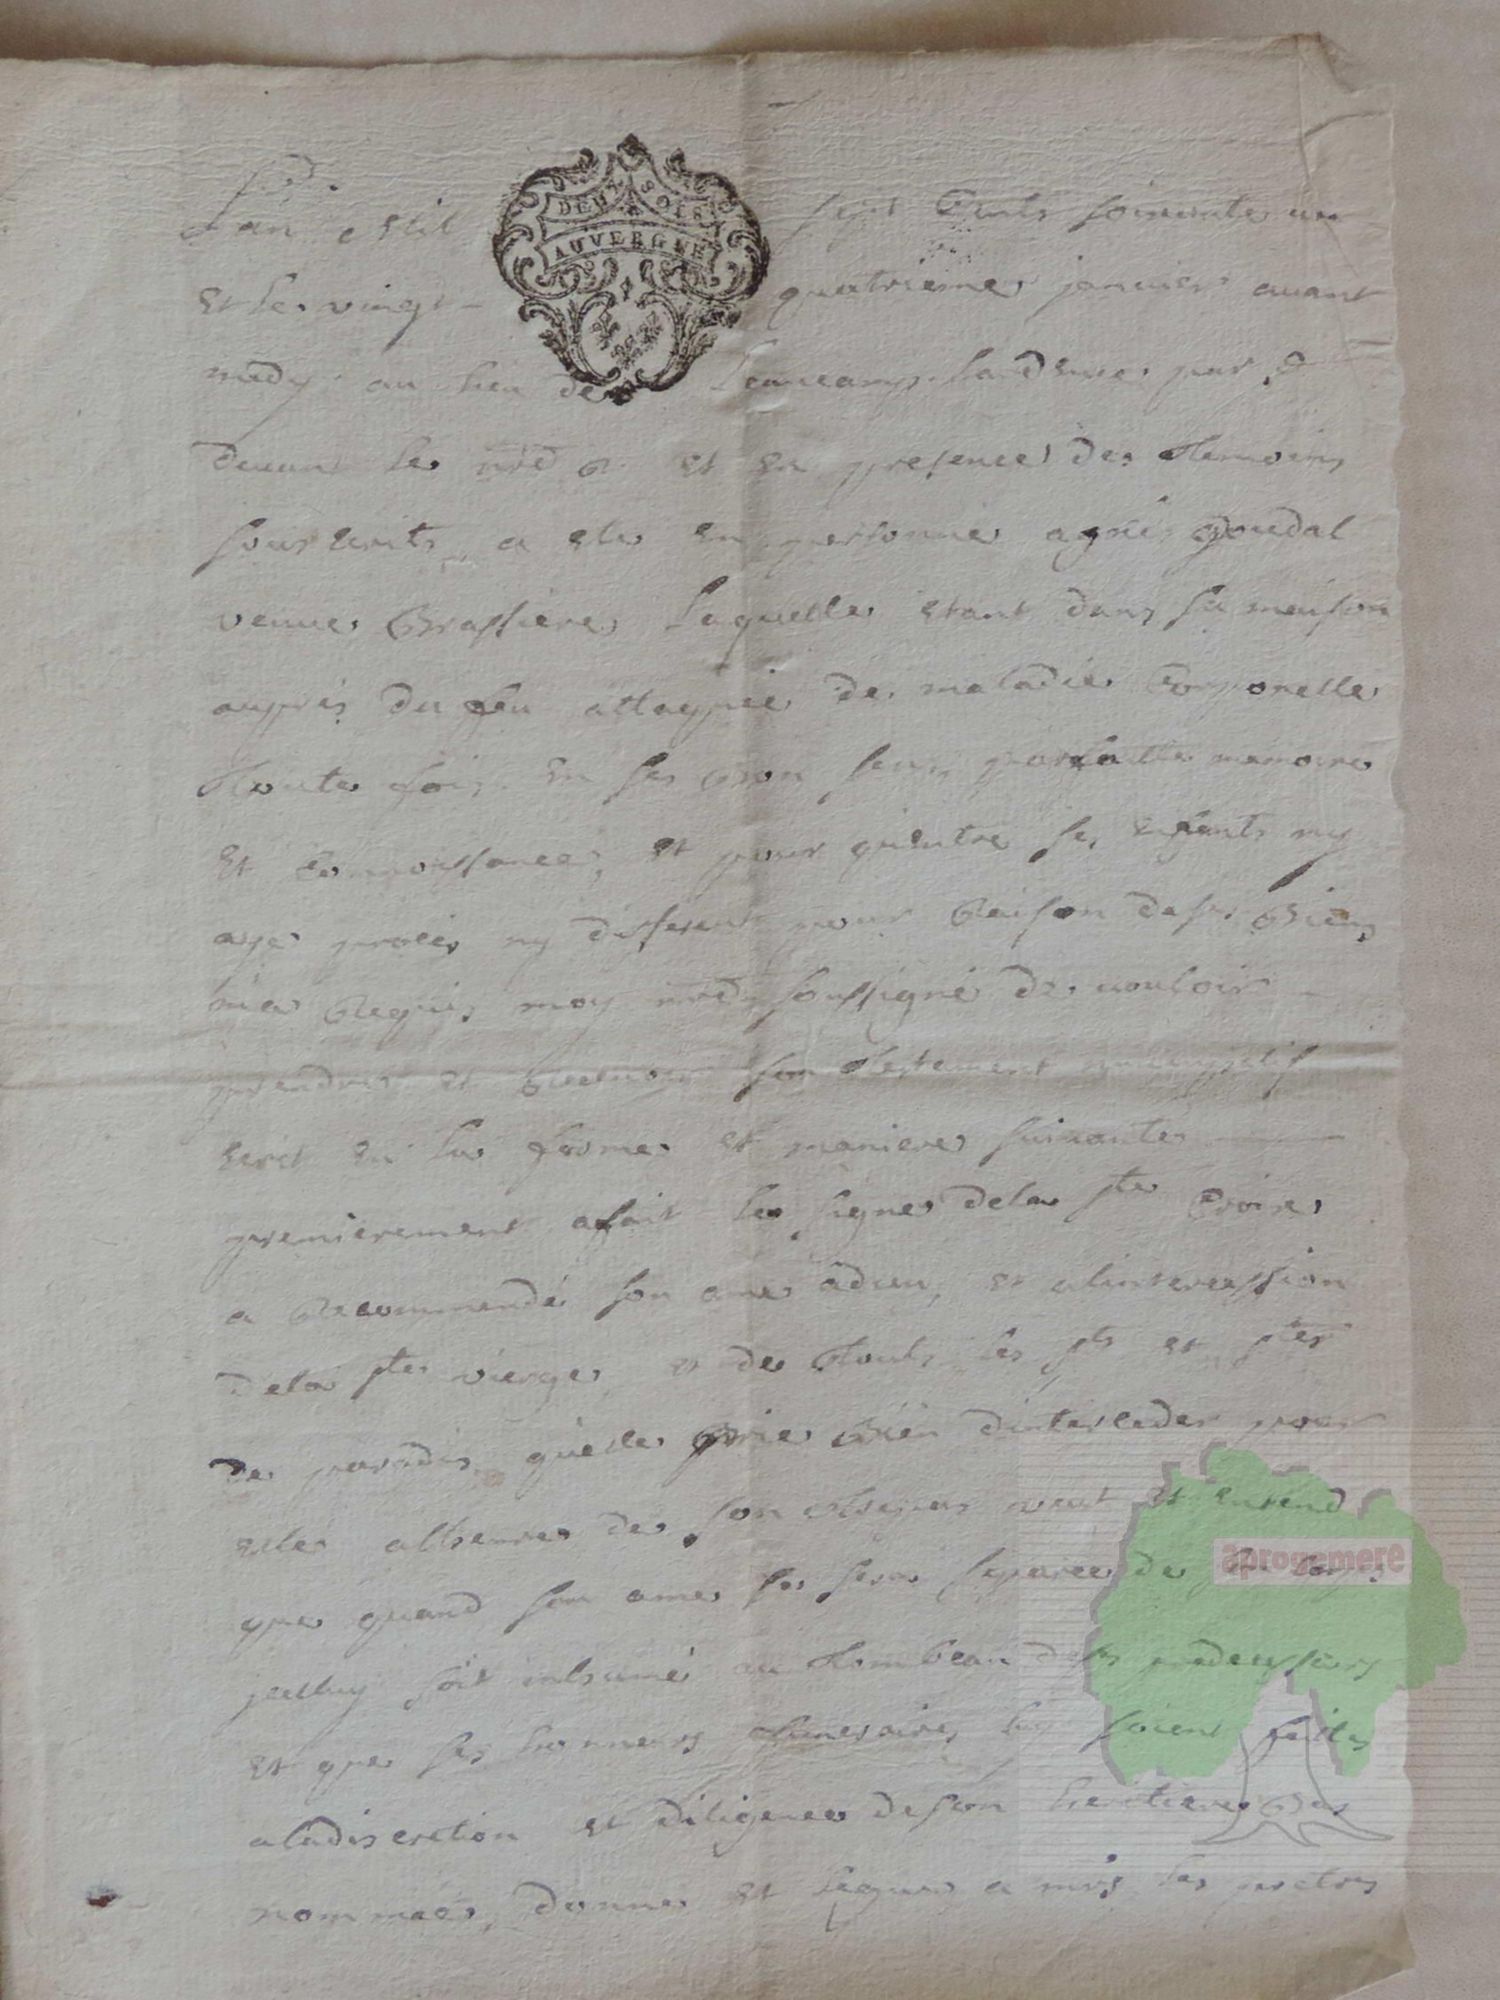 DEUX SOLS
AUVERGNE
L'an mil sept Cents soixante un
Et le vingt quatrieme janvier avant
midy au lieu de par
devant le nre Et En presence des temoins
souscrits, a ete En personne agnés goudal
veuve Brassiere, Laquelle etant dans sa maison
auprés du feu attaquée de maladie Corporelle
toute fois En ses bon sens, parfaitte memoire
Et Connoissance, Et pour qu'entre ses Enfants ny
aye procés ny different pour Raison de ses Biens
m'a Requis moy nre soussigné de vouloir
prendre et Recevoir son testement
ecrit En la forme et maniere suivante
premierement a fait le signe de la ste Croix
a Recommendé son ame a dieu, et a lintercession
de la ste vierge et de touts les sts et stes
de paradis qu'elle prie Bien d'interceder pour
elle a lheure de son trepas veut et Entend
que quand son ame sera separée de son corps
jcelluy soit inhumé au tombeau de ses predecesseurs
et que ses honneurs funeraires luy soient faites
a la discretion et diligence de son heritiere Bas
nommée, donne et legue a mrs les pretres
aprogemere